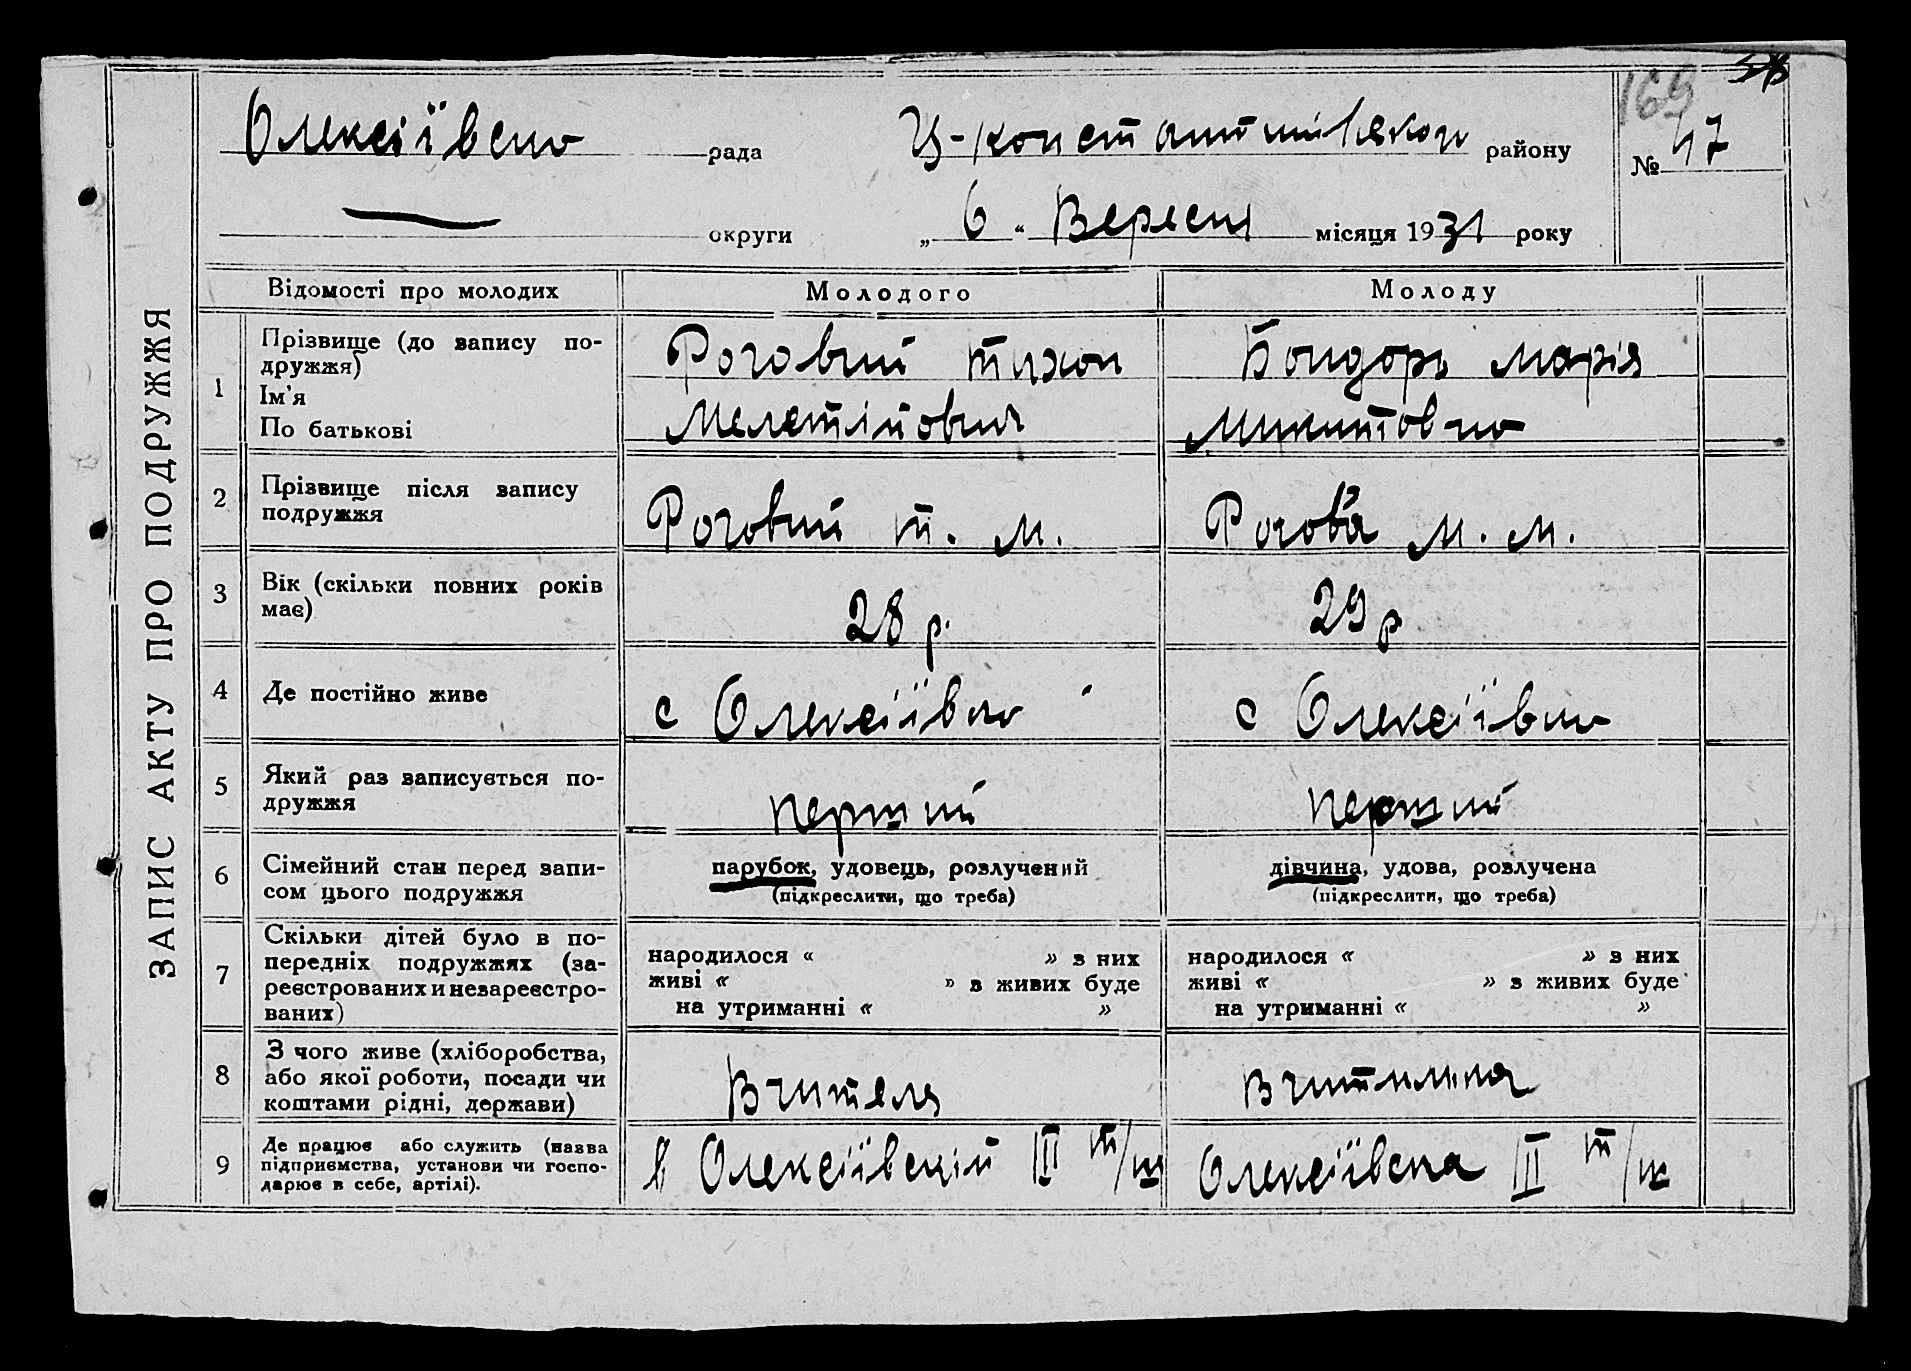 169
Олексіївсна рада Ц-константинівского району № 47
округи „ 6 “ Вересня місяця 1931 року
ЗАПИС АКТУ ПРО ПОДРУЖЖЯ
Відомості про молодих Молодого Молоду
1 Прізвище (до запису по-
дружжя)
Ім'я
По батькові
Роговий Тихон
Мелетійович
Бондорь Марія
Микитовно
2 Прізвище після запису
подружжя
Роговий Т. М.
Рогова М. М.
3 Вік (скільки повних років
має)
28 р.
29 р
4 Де постійно живе
с Олексіївно
с Олексіївно
5 Який раз записується по-
дружжя
перший
перший
6 Сімейний стан перед запи-
сом цього подружжя
парубок, удовець, розлучений
(підкреслити, що треба)
дівчина, удова, розлучена
(підкреслити, що треба)
7 Скільки дітей було в по-
передніх подружжях (за-
реєстрованих и незареєстро-
ваних)
народилося « » з них
живі « » з живих буде
на утриманні « »
народилося « » з них
живі « » з живих буде
на утриманні « »
8 З чого живе (хліборобства,
або якої роботи, посади чи
коштами рідні, держави)
Вчителя
Вчителька
9 Де працює або служить (назва
підприємства, установи чи госпо-
дарює в себе, артілі).
в Олексіївскій III т/ш
Олексіївска III т/ш